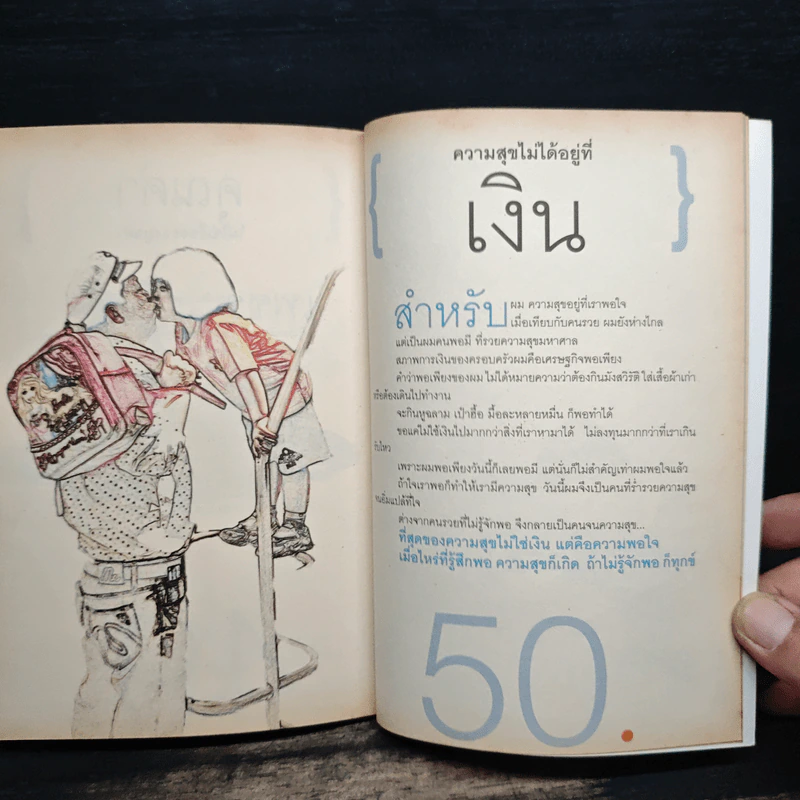 ความสุขไม่ได้อยู่ที่
เงิน
สำหรับผม ความสุขอยู่ที่เราพอใจ
เมื่อเทียบกับคนรวย ผมยังห่างไกล
แต่เป็นผมคนพอมี ที่รวยความสุขมหาศาล
สภาพการเงินของครอบครัวผมคือเศรษฐกิจพอเพียง
คำว่าพอเพียงของผม ไม่ได้หมายความว่าต้องกินมังสวิรัติ ใส่เสื้อผ้าเก่า
หรือต้องเดินไปทำงาน
จะกินหูฉลาม เป๋าฮื้อ มื้อละหลายหมื่น ก็พอทำได้
ขอแค่ไม่ใช้เงินไปมากกว่าสิ่งที่เราหามาได้ ไม่ลงทุนมากกว่าที่เราเกิน
รับไหว
เพราะผมพอเพียงวันนี้ก็เลยพอมี แต่นั่นก็ไม่สำคัญเท่าผมพอใจแล้ว
ถ้าใจเราพอก็ทำให้เรามีความสุข วันนี้ผมจึงเป็นคนที่ร่ำรวยความสุข
จนอิ่มแปล้ที่ใจ
ต่างจากคนรวยที่ไม่รู้จักพอ จึงกลายเป็นคนจนความสุข...
ที่สุดของความสุขไม่ใช่เงิน แต่คือความพอใจ
เมื่อไหร่ที่รู้สึกพอ ความสุขก็เกิด ถ้าไม่รู้จักพอ ก็ทุกข์
50.